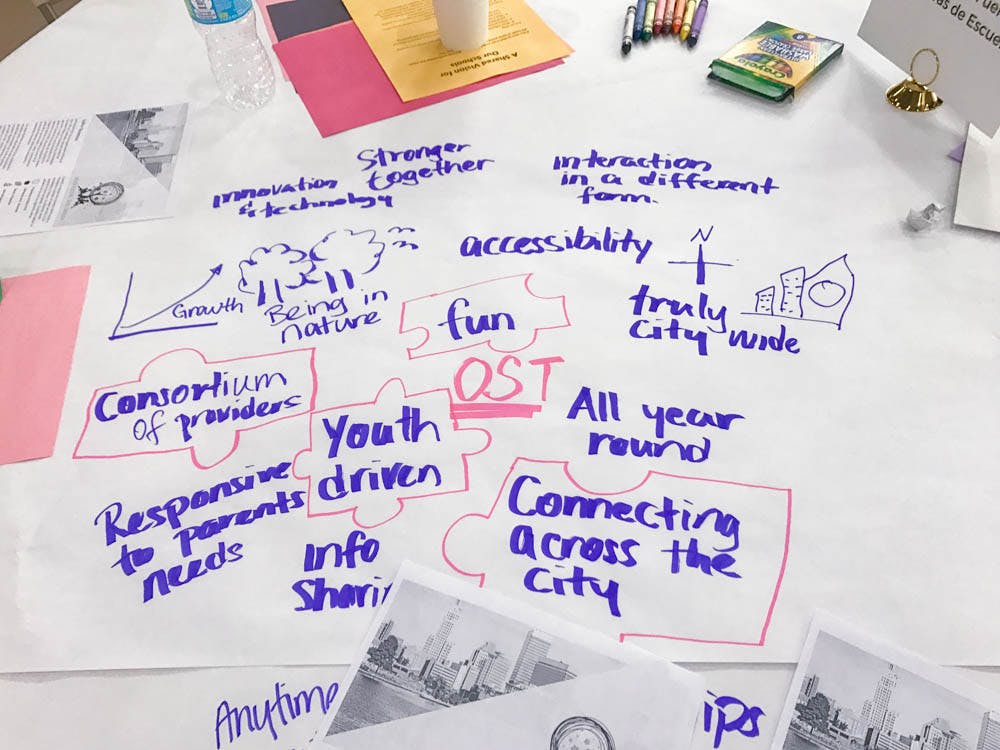 A Shared Vision for
Our Schools
Crayola
as de Escue
Stronger
together
Innovation
& technology
interaction
in a different
form.
accessibility
N
truly
city wide
Growth
Being in
nature
fun
OST
Consortium
of providers
Youth
driven
All year
round
Responsive
to parents
needs
Info
Sharin
Connecting
across the
city
Anytime
ips